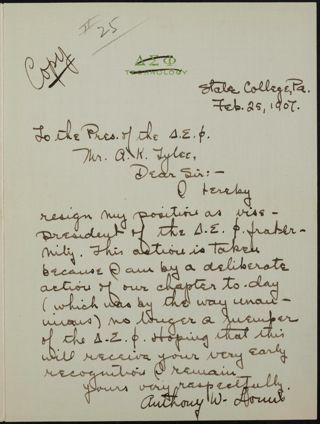 Copy
II
25
ΔΣΦ
TECHNOLOGY
State College, Pa.
Feb. 25, 1907.
To the Pres. of the Δ.Σ.Φ.
Mr. A. K. Tylee,
Dear Sir:-
I hereby
resign my position as vise-
president of the Δ.Σ.Φ. frater-
nity. This action is taken
because I am by a deliberate
action of our chapter to-day
(which was by the way unan-
imous) no longer a member
of the Δ.Σ.Φ. Hoping that this
will receive your very early
recognition I remain.
yours very respectfully.
Anthony W.